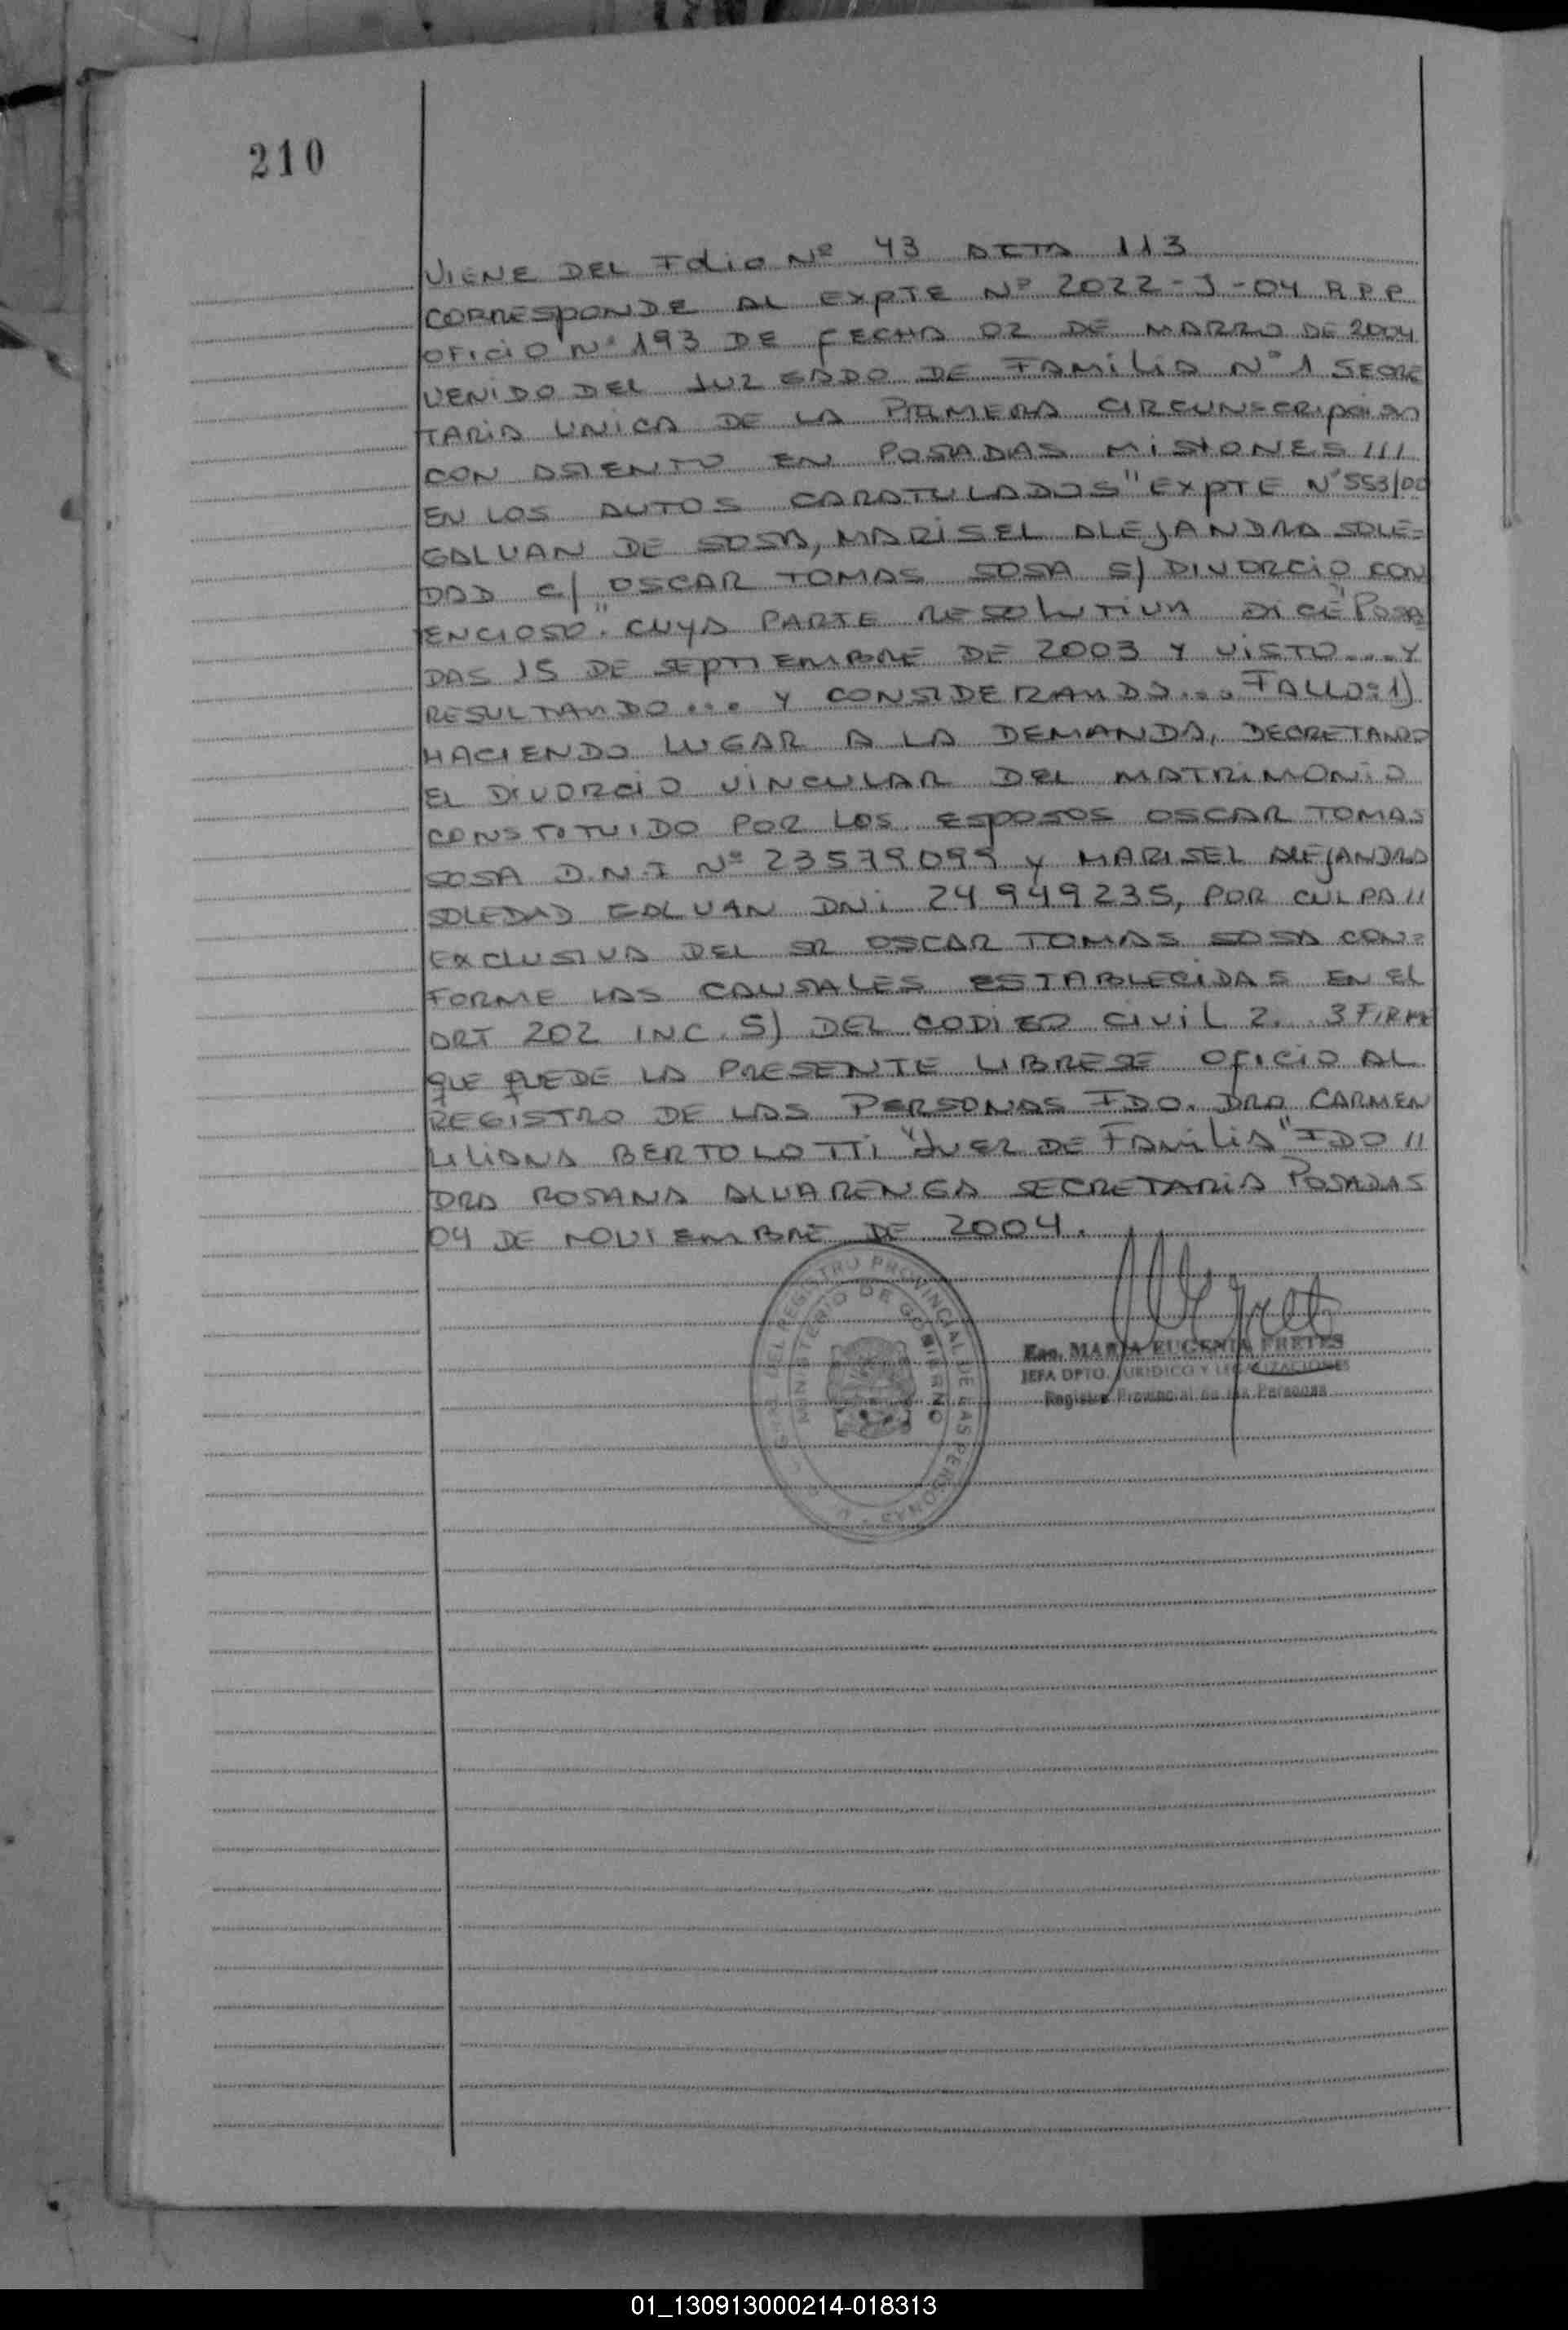 210
VIENE DEL FOLIO Nº 43 ACTA 113
CORRESPONDE AL EXPTE Nº 2022-J-04 R.P.P.
OFICIO Nº 193 DE FECHA 02 DE MARZO DE 2004
VENIDO DEL JUZGADO DE FAMILIA Nº 1 SECRE
TARIA UNICA DE LA PRIMERA CIRCUNSCRIPCION
CON ASIENTO EN POSADAS MISIONES ///
EN LOS AUTOS CARATULADOS "EXPTE Nº 553/00
GALVAN DE SOSA, MARISEL ALEJANDRA SOLE=
DAD C/ OSCAR TOMAS SOSA S/ DIVORCIO CON
TENCIOSO". CUYA PARTE RESOLUTIVA DICE "POSA
DAS 15 DE SEPTIEMBRE DE 2003 Y VISTO....Y
RESULTANDO... Y CONSIDERANDO... FALLO: 1)
HACIENDO LUGAR A LA DEMANDA, DECRETANDO
EL DIVORCIO VINCULAR DEL MATRIMONIO
CONSTITUIDO POR LOS ESPOSOS OSCAR TOMAS
SOSA D.N.I Nº 23579099 y MARISEL ALEJANDRA
SOLEDAD GALVAN DNI 24949235, POR CULPA //
EXCLUSIVA DEL SR OSCAR TOMAS SOSA CON=
FORME LAS CAUSALES ESTABLECIDAS EN EL
ART 202 INC. 5) DEL CODIGO CIVIL 2... 3 FIRME
QUE QUEDE LA PRESENTE LIBRESE OFICIO AL
REGISTRO DE LAS PERSONAS FDO. DRA CARMEN
LILIANA BERTOLOTTI "JUEZ DE FAMILIA" FDO //
DRA ROSANA ALVARENGA SECRETARIA POSADAS
04 DE NOVIEMBRE DE 2004.
DEL REGISTRO PROVINCIAL DE LAS PERSONAS
MINISTERIO DE GOBIERNO
Esc. MARIA EUGENIA FRETES
JEFA DPTO. JURIDICO Y LEGALIZACIONES
Registro Provincial de las Personas
01_130913000214-018313